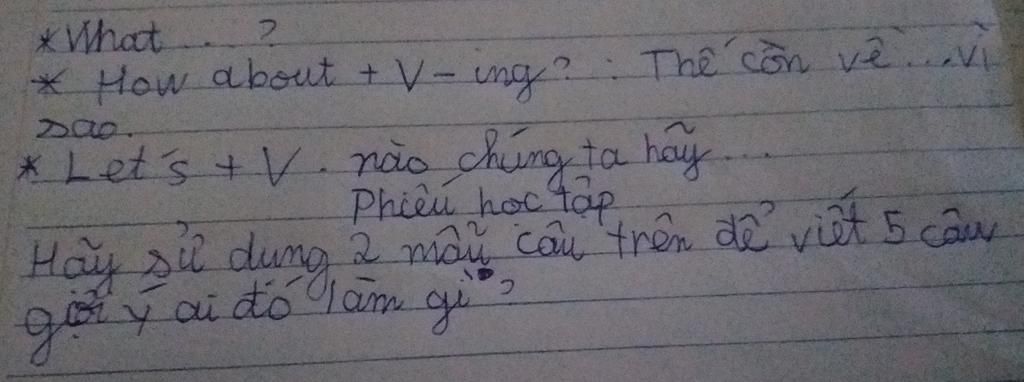 * What ... ?
* How about + V - ing? : Thế còn về ... vì
sao.
* Let's + V . nào chúng ta hãy ...
Phiếu học tập
Hãy sử dụng 2 mẫu câu trên để viết 5 câu
gợi ý ai đó làm gì?